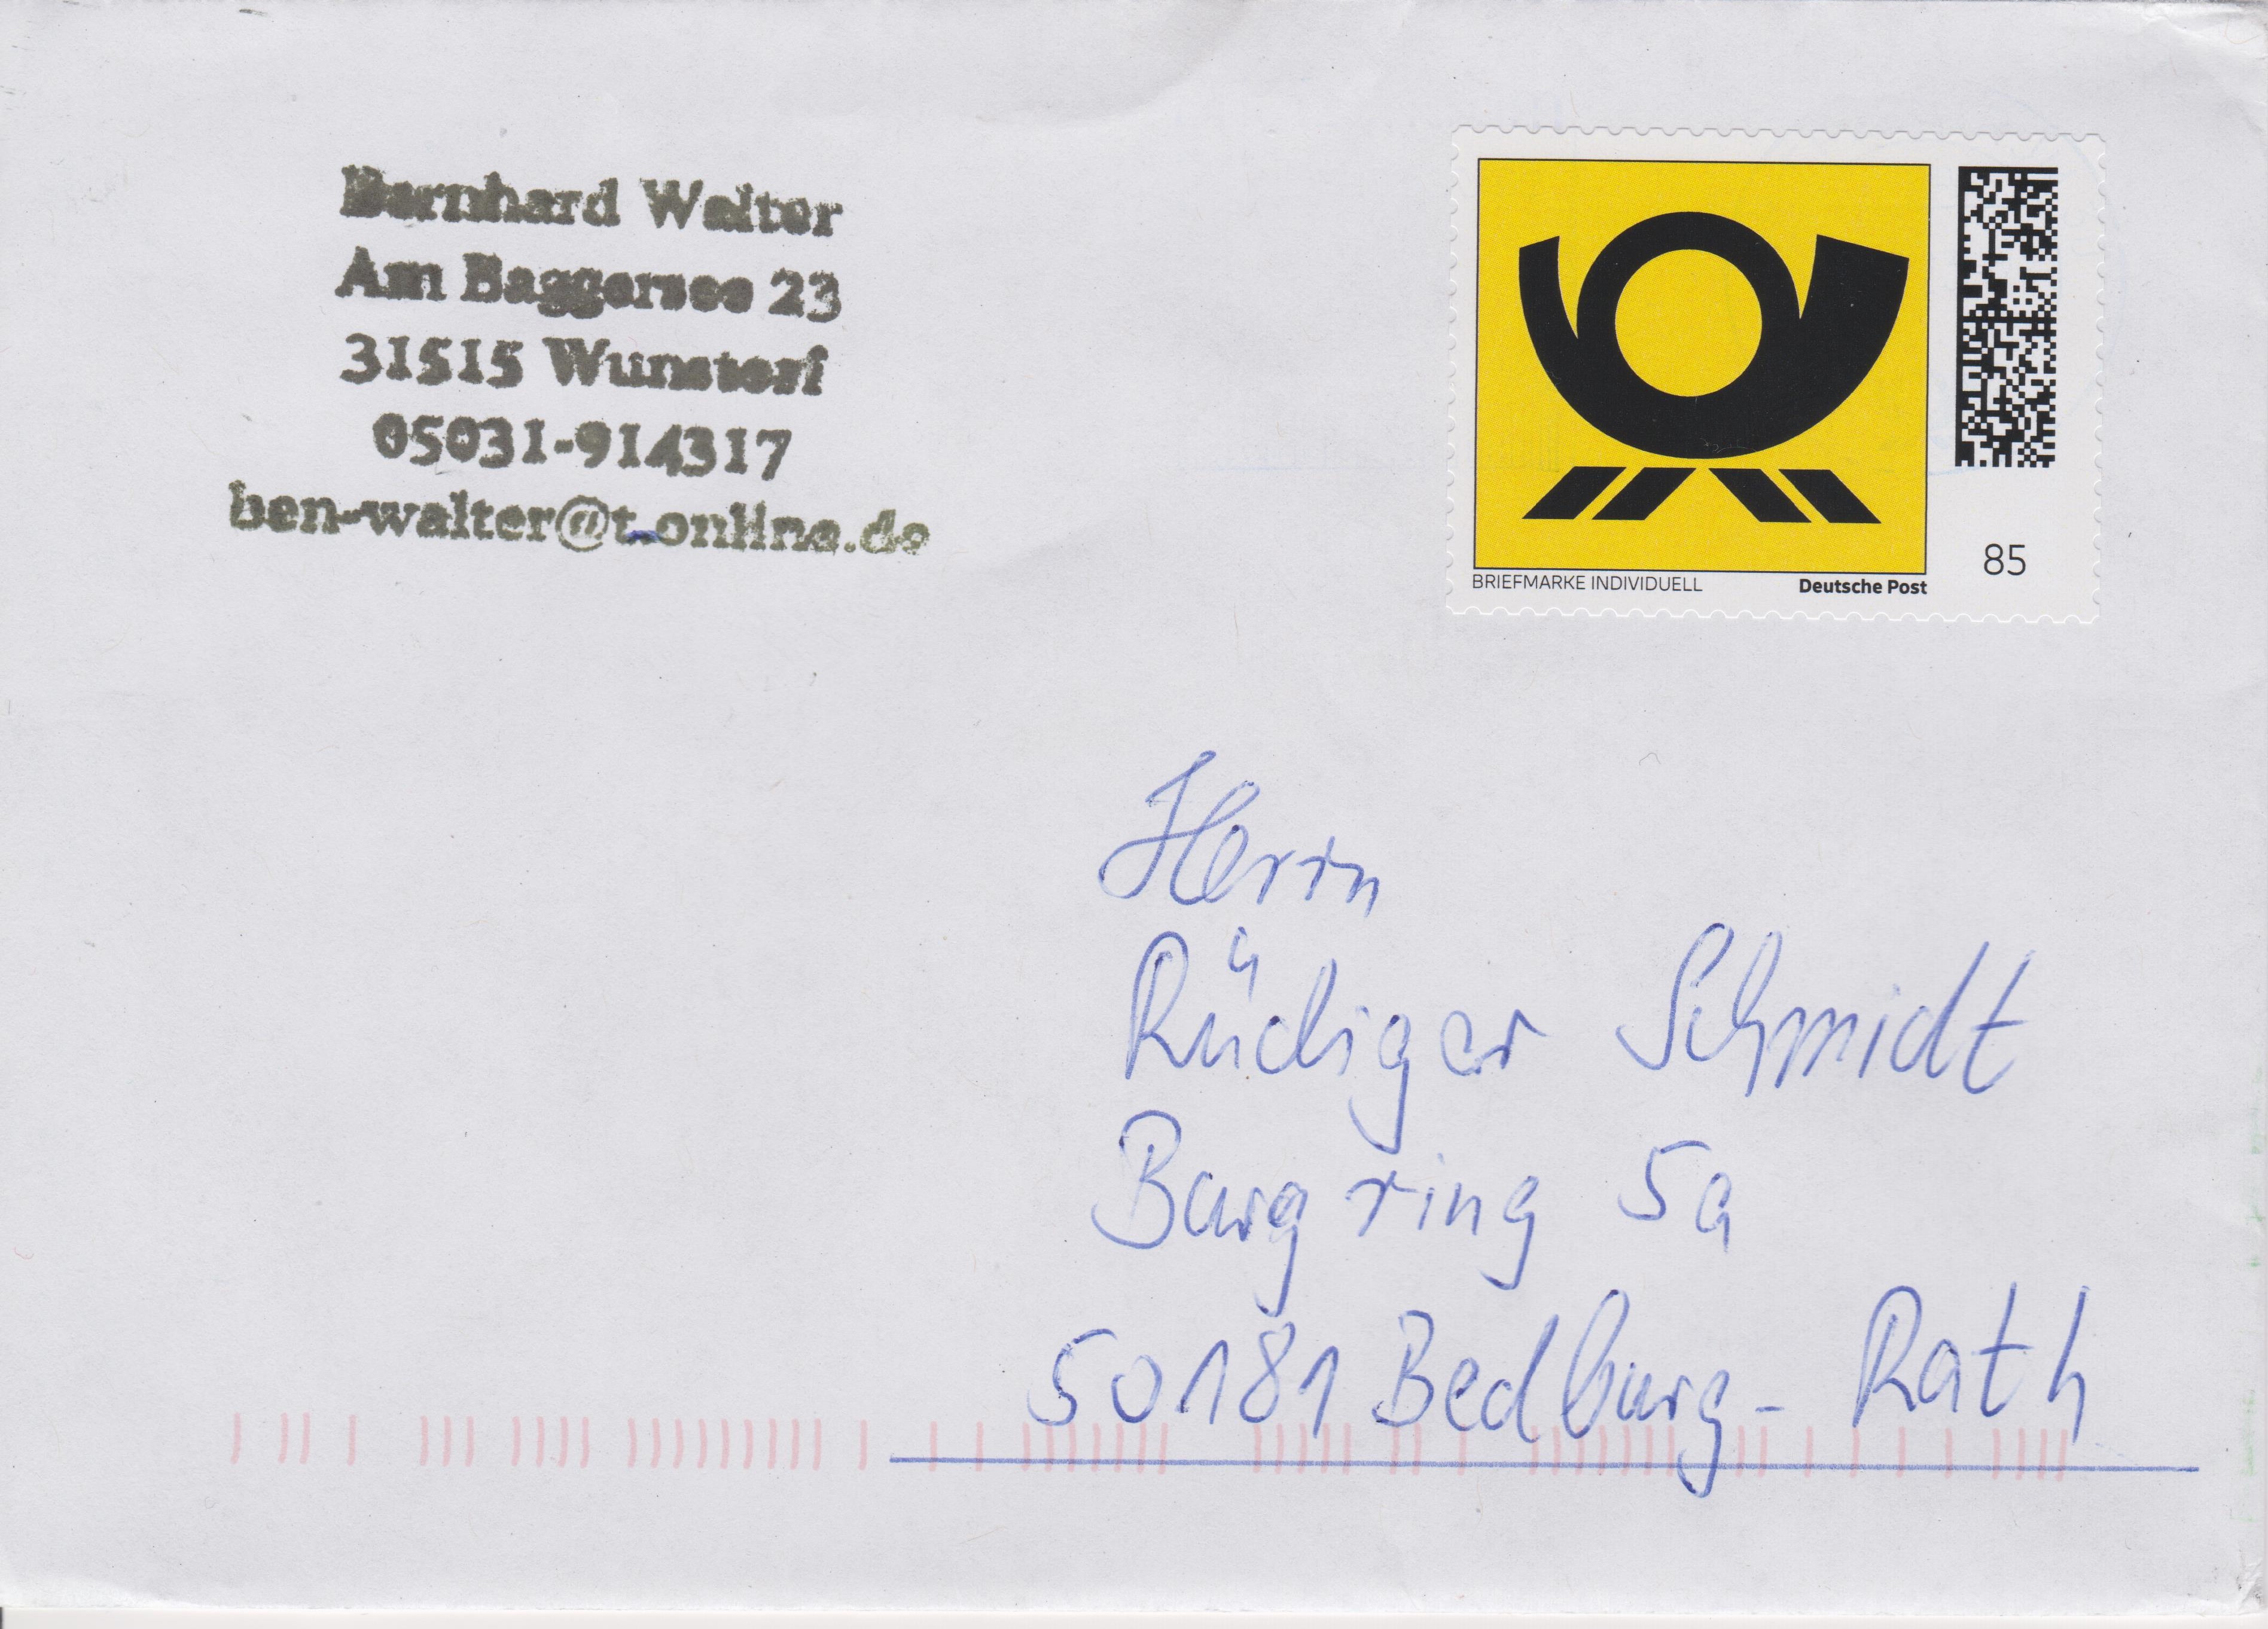 Bernhard Walter
Am Baggersee 23
31515 Wunstorf
05031-914317
ben-walter@t-online.de
BRIEFMARKE INDIVIDUELL Deutsche Post
85
Herrn
Rüdiger Schmidt
Burgring 5a
50181 Bedburg-Rath